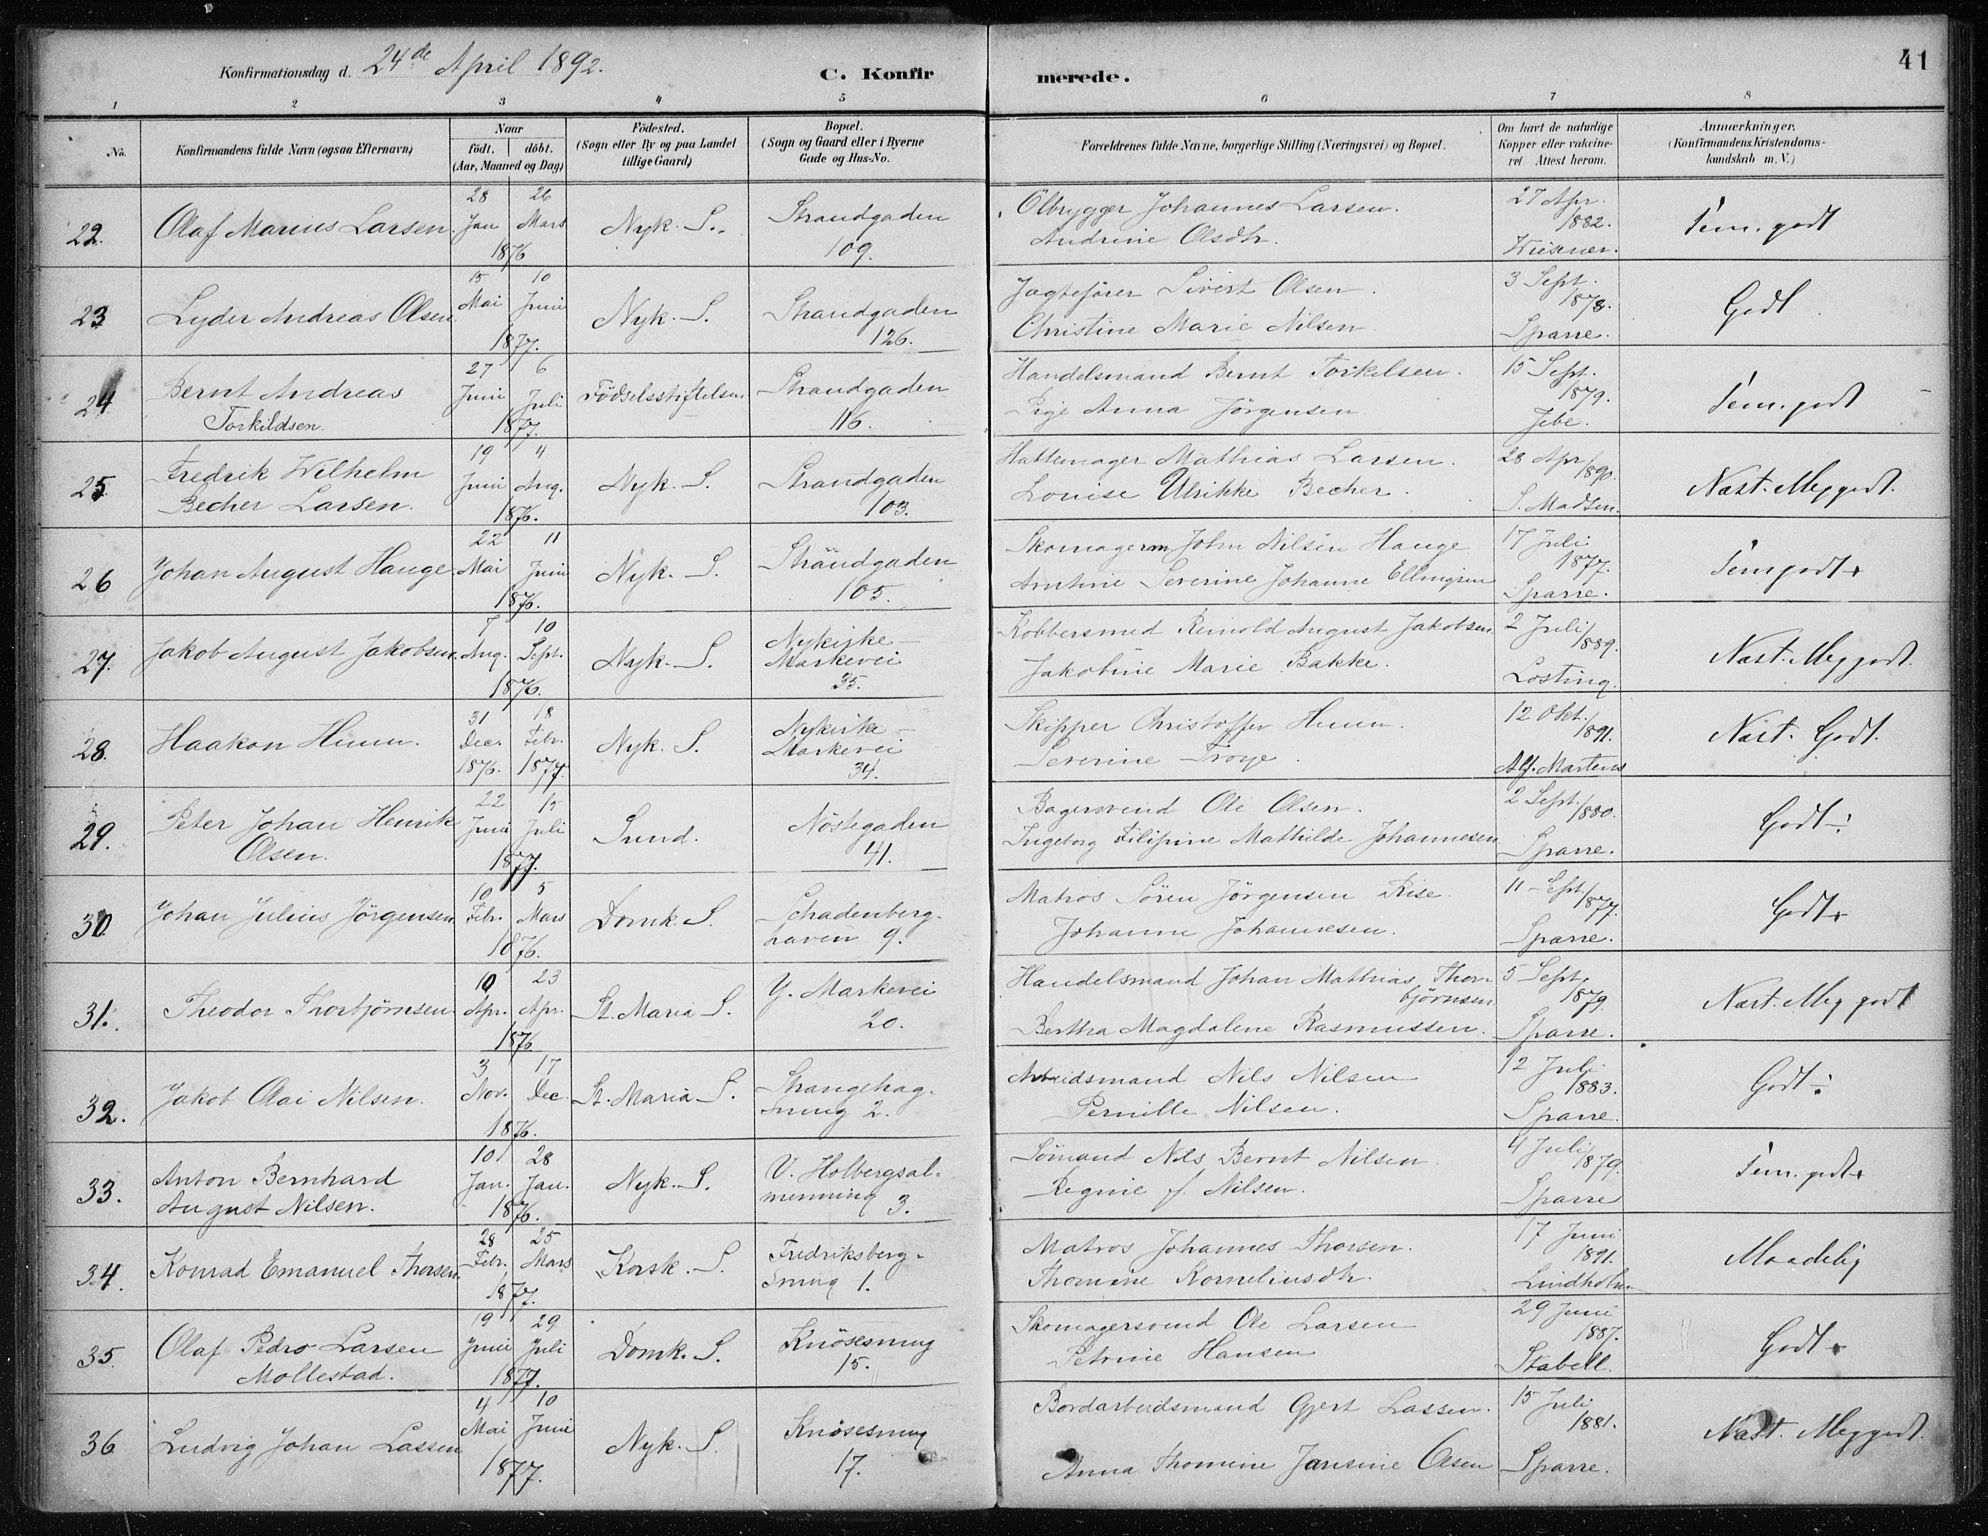 Konfirmationsdag d. 24de April 1892. C. Konfirmerede. 41
1 2 3 4 5 6 7 8
No. Konfirmandens fulde Navn (ogsaa Efternavn) Naar født. døbt. (Aar, Maaned og Dag) Födested. (Sogn eller By og paa Landet tillige Gaard) Bopæl. (Sogn og Gaard eller i Byerne Gade og Hus-No. Forældrenes fulde Navne, borgerlige Stilling (Næringsvei) og Bopæl. Om havt de naturlige Kopper eller vakcineret Attest herom. Anmærkninger. (Konfirmandens Kristendomskundskab m. V.)
22. Olaf Marius Larsen. 28 Jan 26 Mars 1876 Nyk. S. Strandgaden 109. Ölbrygger Johannes Larsen. Andrine Olsdtr. 27 Apr. 1882. Wiesener. Tem. godt
23 Lyder Andreas Olsen 15 Mai 10 Juni 1877. Nyk. S. Strandgaden 126. Jagtefører Sivert Olsen. Christine Marie Nilsen. 3 Sept. 1878. Sparre. Godt
24 Bernt Andreas Torkildsen. 27 Juni 6 Juli 1877. Födselsstiftelsen Strandgaden 116. Handelsmand Bernt Torkelsen. Pige Anna Jörgensen 15 Sept. 1879. Jebe. Tem. godt
25. Fredrik Wilhelm Becher Larsen. 19 Juni 4 Aug. 1876. Nyk. S. Strandgaden 103. Hattemager Mathias Larsen. Louise Ulrikke Becher. 28 Apr 1890. S. Madsen. Næst. Meg godt.
26 Johan August Hauge 22 Mai 11 Juni 1876. Nyk. S. Strandgaden 105. Skomagerm John Nilsen Hauge Severine Johanne Ellingsen 17 Juli 1877. Sparre. Tem godt +
27. Jakob August Jakobsen. 7 Aug. 10 Sept. 1876. Nyk. S. Nykirke-Markevei 35. Kobbersmed Reinold August Jakobsen Jakobine Marie Bakke. 2 Juli 1889. Losting. Næst. Meg godt.
28. Haakon 31 Dec. 1876. 18 Febr. 1877. Nyk. S. Nykirke-Markevei 34. Skipper Christoffer Severine Troye. 12 Okt. 1891. Alf. Martens Næst. Godt.
29. Peter Johan Henrik Olsen. 22 Juni 15 Juli 1877. Sund. Nöstegaden 41. Bagersvend Ole Olsen. Ingeborg Filipine Mathilde Johannesen 2 Sept. 1880. Sparre. Godt ÷
30 Johan Julius Jörgensen 10 Febr. 5 Mars 1876. Domk. S. Schadenberghaven 9. Matros Sören Jörgensen Rise. Johanne Johannesen. 11 Sept. 1877. Sparre. Godt +
31. Theodor Thorbjørnsen 10 Apr. 23 Apr. 1876 St. Maria S. Y. Markevei 20. Handelsmand Johan Mathias Thorbjørnsen Bertha Magdalene Rasmussen. 5 Sept. 1879. Sparre. Næst. Meg godt
32. Jakob Olai Nilsen. 3 Nov. 17 Dec. 1876. St. Maria S. Strangehagsmug 2. Arbeidsmand Nils Nilsen Pernille Nilsen. 12 Juli 1883. Sparre. Godt ÷
33. Anton Bernhard August Nilsen. 10 Jan. 28 Jan. 1876. Nyk. S. V. Holbergsalmenning 3. Sømand Nils Bernt Nilsen. Regine f. Nilsen. 4 Juli 1879. Sparre Tem. godt +
34. Konrad Emanuel Thorsen. 28 Febr. 25 Mars 1877. Korsk. S. Fredriksbergsmug 1. Matros Johannes Thorsen. Thomine Korneliusdtr. 17 Juni 1891. Lindholm. Maadelig
35. Olaf Pedro Larsen Mollestad. 19 Juni 29 Juli 1877. Domk. S. Knösesmug 15. Skomagersvend Ole Larsen Petrine Hansen 29 Juni 1887. Stabell. Godt +
36 Ludvig Johan Lassen 4 Mai 10 Juni 1877. Nyk. S. Knösesmug 17. Bordarbeidsmand Gjert Lassen. Anna Thomine Jansine Olsen 15 Juli 1881. Sparre. Næst. Meg godt.